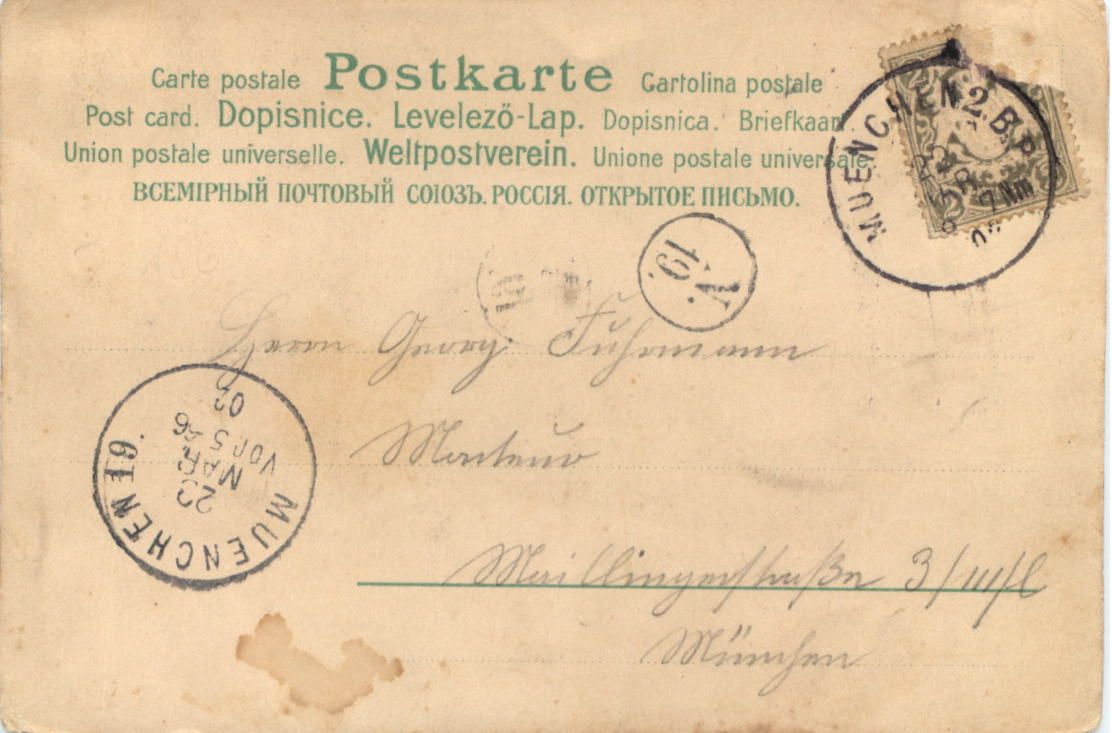 Carte postale Postkarte Cartolina postale
Post card. Dopisnice. Levelező-Lap. Dopisnica. Briefkaart.
Union postale universelle. Weltpostverein. Unione postale universale.
ВСЕМІРНЫЙ ПОЧТОВЫЙ СОЮЗЪ. РОССІЯ. ОТКРЫТОЕ ПИСЬМО.
MUENCHEN 2.B.P.
22
MAR
7 Nm
02
2
2
V.
19.
19
Herrn Georg Fuhrmann
Monteur
MUENCHEN 19.
23
MAR.
VOR 5 56
02
Maillingerstraße 3/III/l
München